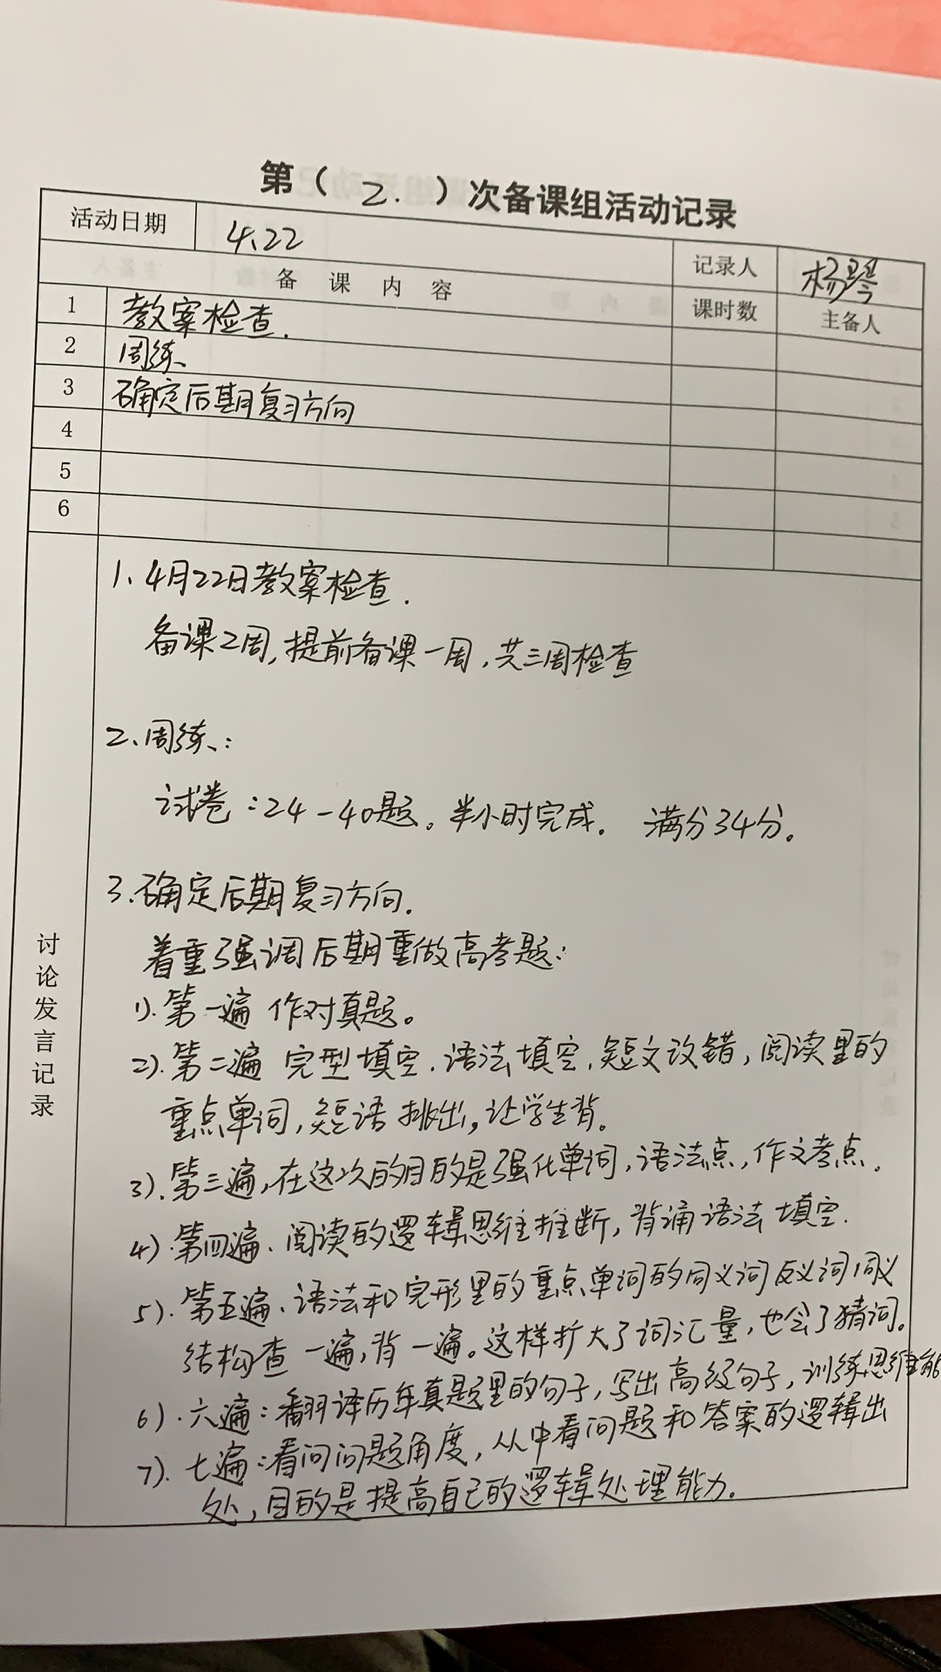 第（ 2. ）次备课组活动记录
活动日期 4.22 记录人 杨琴
备 课 内 容 课时数 主备人
1 教案检查.
2 周练、
3 确定后期复习方向
4
5
6
讨论发言记录
1、4月22日教案检查.
备课2周,提前备课一周,共三周检查
2、周练、:
试卷:24-40题。半小时完成. 满分34分。
3.确定后期复习方向.
着重强调后期重做高考题:
1).第一遍 作对真题。
2).第二遍 完型填空.语法填空,短文改错,阅读里的
重点单词,短语挑出,让学生背。
3).第三遍,在这次的目的是强化单词,语法点,作文考点.
4).第四遍、阅读的逻辑思维推断,背诵语法填空.
5).第五遍、语法和完形里的重点单词的同义词反义词,同义
结构查一遍,背一遍。这样扩大了词汇量,也会了猜词。
6).六遍:翻译历年真题里的句子,写出高级句子,训练思维能
7).七遍:看问问题角度,从中看问题和答案的逻辑出
处,目的是提高自己的逻辑处理能力。